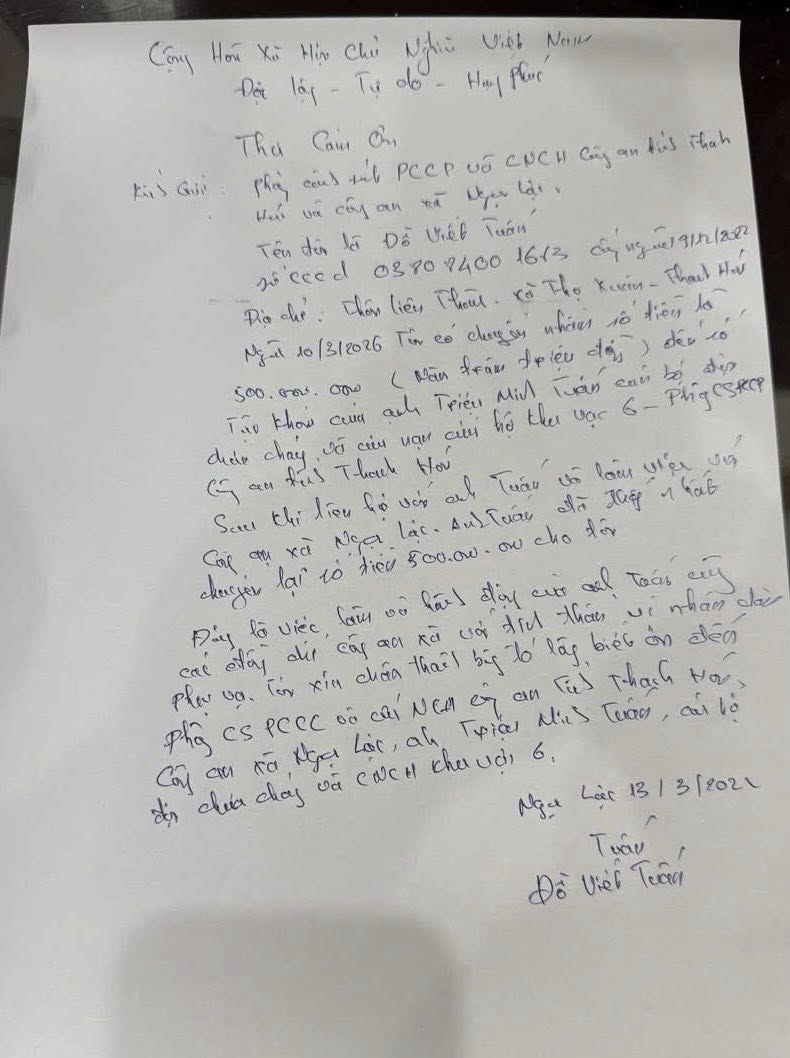 Cộng Hoà Xã Hội Chủ Nghĩa Việt Nam
Độc lập - Tự do - Hạnh Phúc
Thư Cảm Ơn
Kính Gửi: Phòng cảnh sát PCCC và CNCH Công an tỉnh Thanh
Hoá và công an xã Ngọc Lặc,
Tên tôi là Đỗ Viết Tuấn
số cccd cấp ngày 19/12/2022
Địa chỉ: Thôn liên Thành - xã Thọ Xuân - Thanh Hoá
Ngày 10/3/2026 Tôi có chuyển nhầm số tiền là
500.000.000 (Năm trăm triệu đồng) đến số
Tài khoản của anh Triệu Minh Tuấn cán bộ đội
chữa cháy và cứu nạn cứu hộ khu vực 6 - Phòng CSPCCC
Công an tỉnh Thanh Hoá
Sau khi liên hệ với anh Tuấn và làm việc với
Công an xã Ngọc Lặc. Anh Tuấn đã xác nhận
chuyển lại số tiền 500.000.000 cho tôi
Đây là việc làm và hành động của anh Tuấn cùng
các đồng chí công an xã với tinh thần vì nhân dân
phục vụ. Tôi xin chân thành bày tỏ lòng biết ơn đến
phòng CS PCCC và cứu NCH công an Tỉnh Thanh Hoá,
Công an xã Ngọc Lặc, anh Triệu Minh Tuấn, cán bộ
đội chữa cháy và CNCH khu vực 6.
Ngọc Lặc 13/3/2026
Tuấn
Đỗ Viết Tuấn